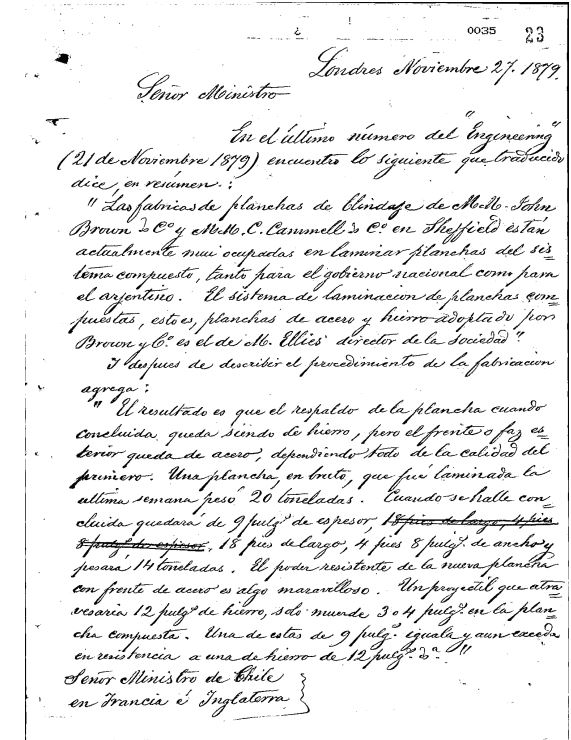 0035 23
Londres Noviembre 27. 1879.
Señor Ministro
En el último número del "Engineering"
(21 de Noviembre 1879) encuentro lo siguiente que traducido
dice, en resúmen.:
"Las fabricas de planchas de blindaje de M.M. John
Brown & Cº y M.M. C. Cammell & Cº en Sheffield están
actualmente mui ocupadas en laminar planchas del sis=
tema compuesto, tanto para el gobierno nacional como para
el arjentino. El sistema de laminacion de planchas com=
puestas, esto es, planchas de acero y hierro adoptado por
Brown y Cº es el de M. Ellies director de la sociedad".
I despues de describir el procedimiento de la fabricacion
agrega:
"El resultado es que el respaldo de la plancha cuando
concluida queda siendo de hierro, pero el frente o faz es=
terior queda de acero, dependiendo todo de la calidad del
primero. Una plancha, en bruto, que fué laminada la
ultima semana pesó 20 toneladas. Cuando se halle con=
cluida quedará de 9 pulgs. de espesor, 18 pies de largo, 4 pies
8 pulgs. de espesor, 18 pies de largo, 4 pies 8 pulgs. de ancho y
pesará 14 toneladas. El poder resistente de la nueva plancha
con frente de acero es algo maravilloso. Un proyectil que atra=
vesaria 12 pulgs. de hierro, solo muerde 3 o 4 pulgs. en la plan=
cha compuesta. Una de estas de 9 pulgs. iguala y aun excede
en resistencia a una de hierro de 12 pulgs. &a."
Señor Ministro de Chile
en Francia é Inglaterra